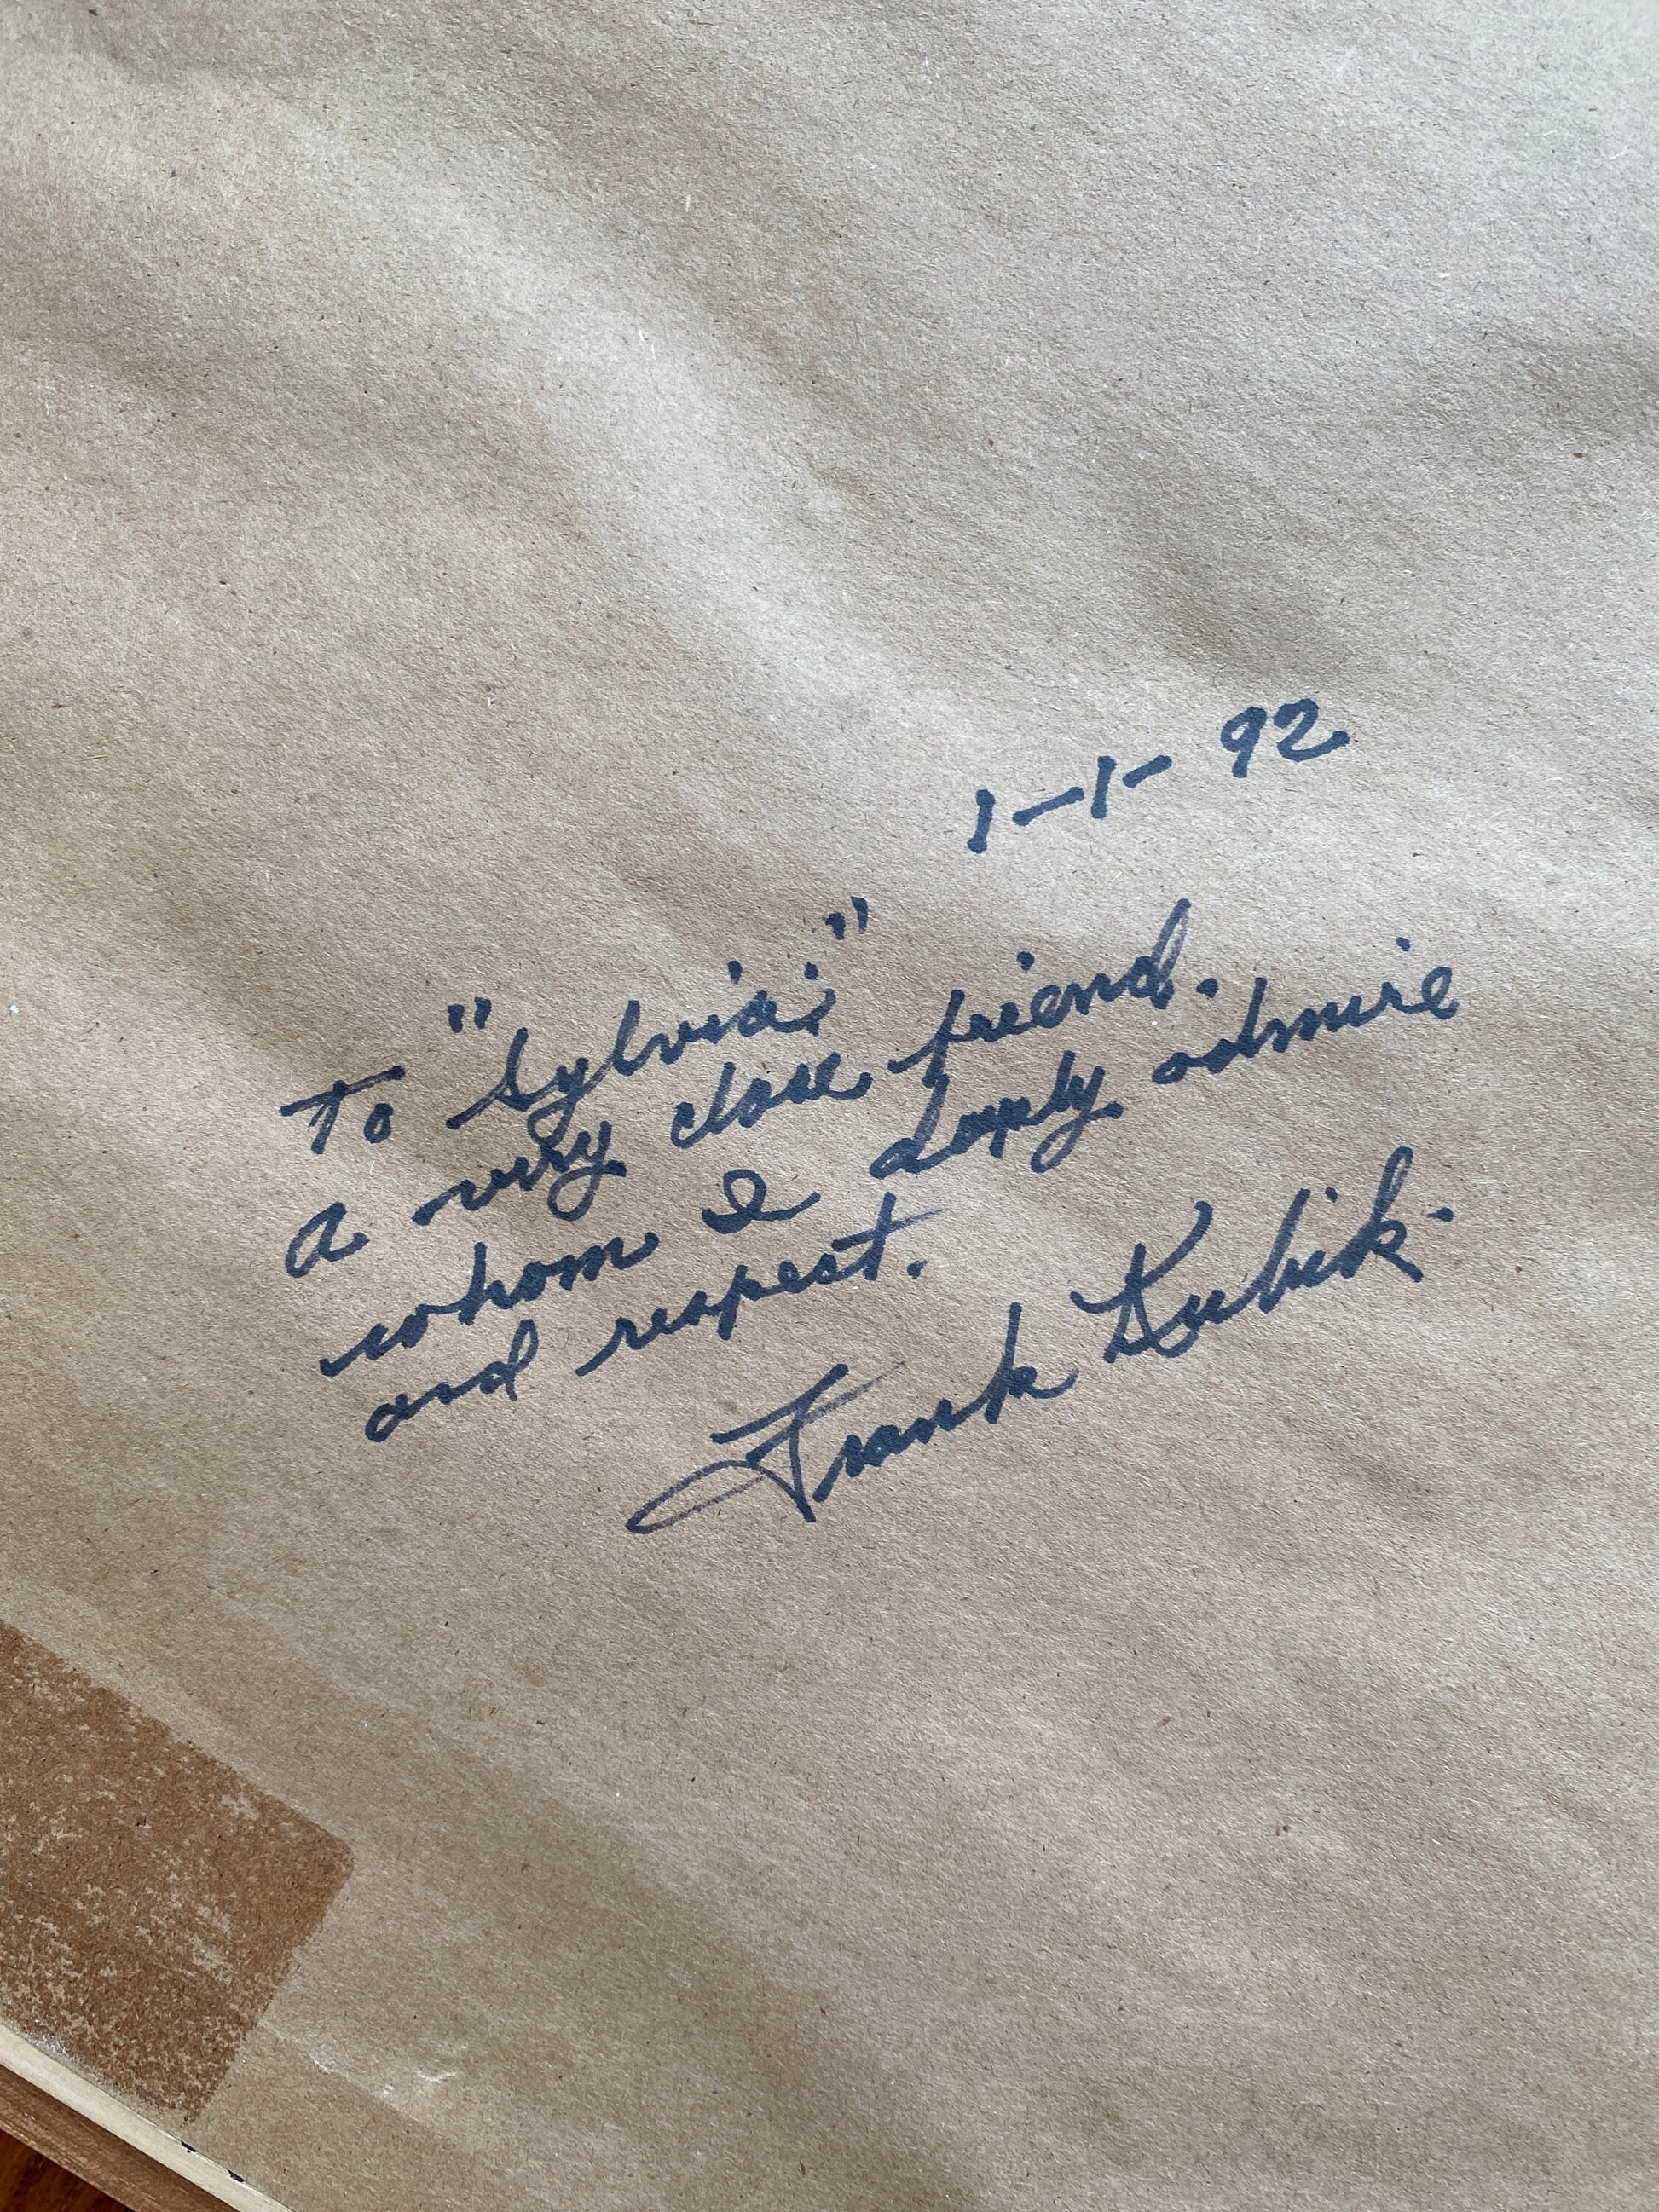 1-1-92
To "Sylvia;"
a very close friend.
whom I deeply admire
and respect.
Frank Kubik.